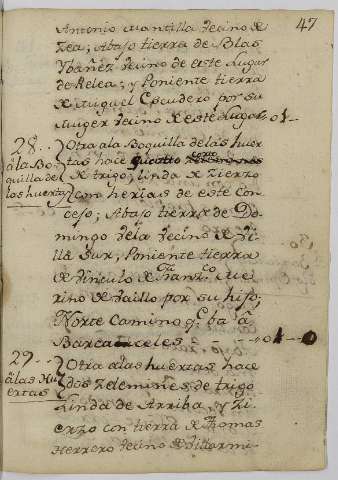 47
Antonio mantilla vecino de
Zea; Abajo tierra de Blas
Ybañez vecino de este Lugar
de Relea; y Poniente tierra
de Miguel Escudero por su
Muger vecino de este Lugar 01
28.. Otra ala Boquilla delas huer
ala Bo-
quilla de
las huertas
tas hace
de trigo; linda de zierzo
con herias de este con
cejo; Abajo tierra de Do-
mingo vela vecino de Vi
lla Sur; Poniente tierra
de vinculo de Fran.co Me
rino de Saillo por su hijo;
Norte Camino q.e ba á
Barcaiceles - - - 01-0
29.. Otra alas huertas hace
alas Hu
ertas
dos zelemines de trigo
Linda de Arriba, y zi-
erzo con tierra de Thomas
Herrero vecino de Villarmi-